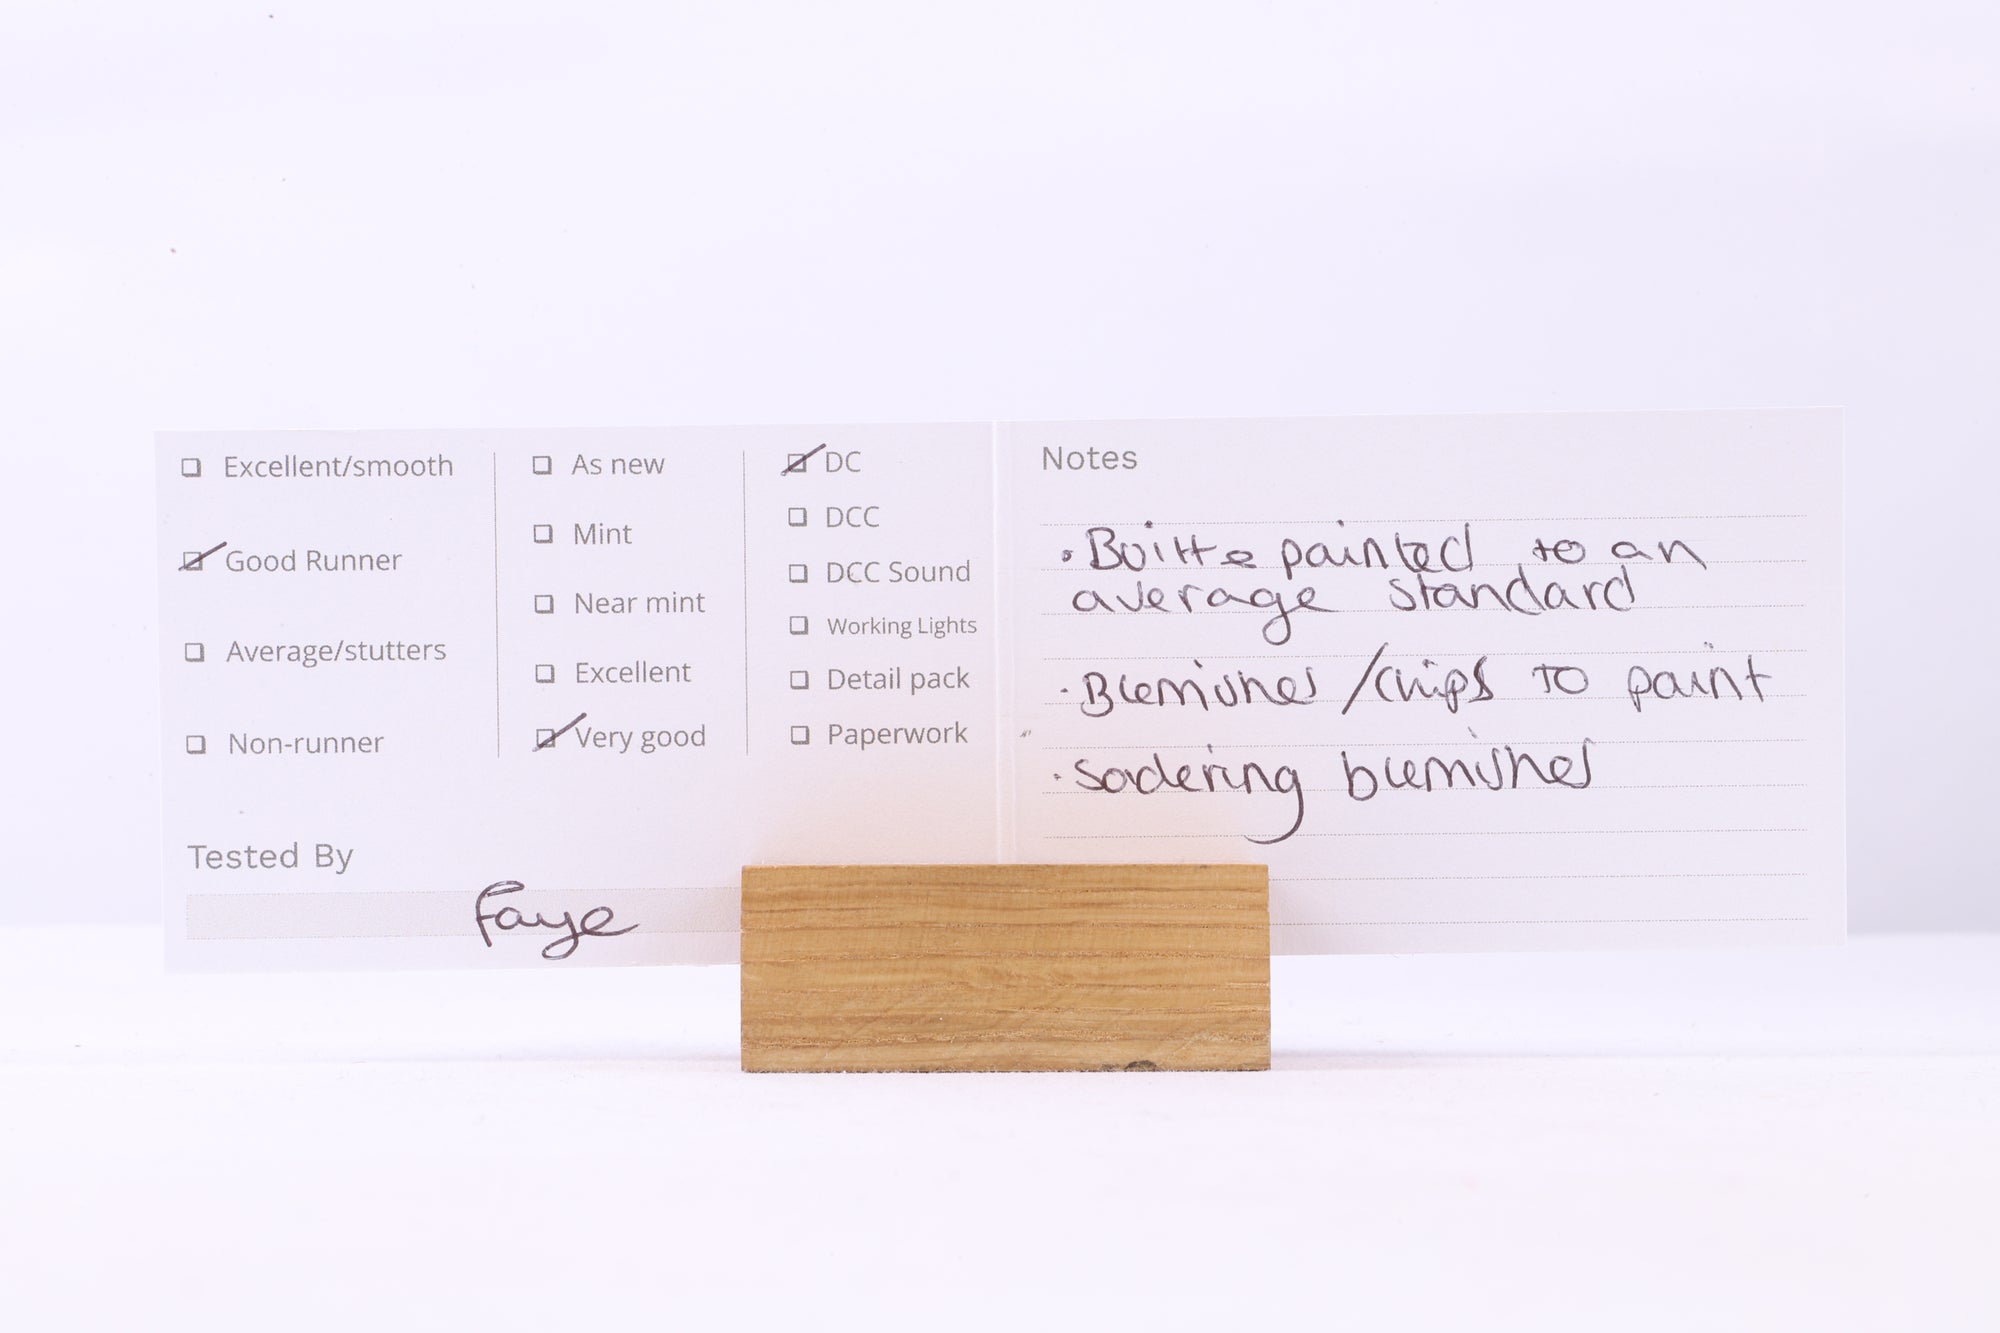 Excellent/smooth
Good Runner
Average/stutters
Non-runner
As new
Mint
Near mint
Excellent
Very good
DC
DCC
DCC Sound
Working Lights
Detail pack
Paperwork
Tested By
Faye
Notes
• Built & painted to an
average standard
• Blemishes / chips to paint
• Sodering blemishes